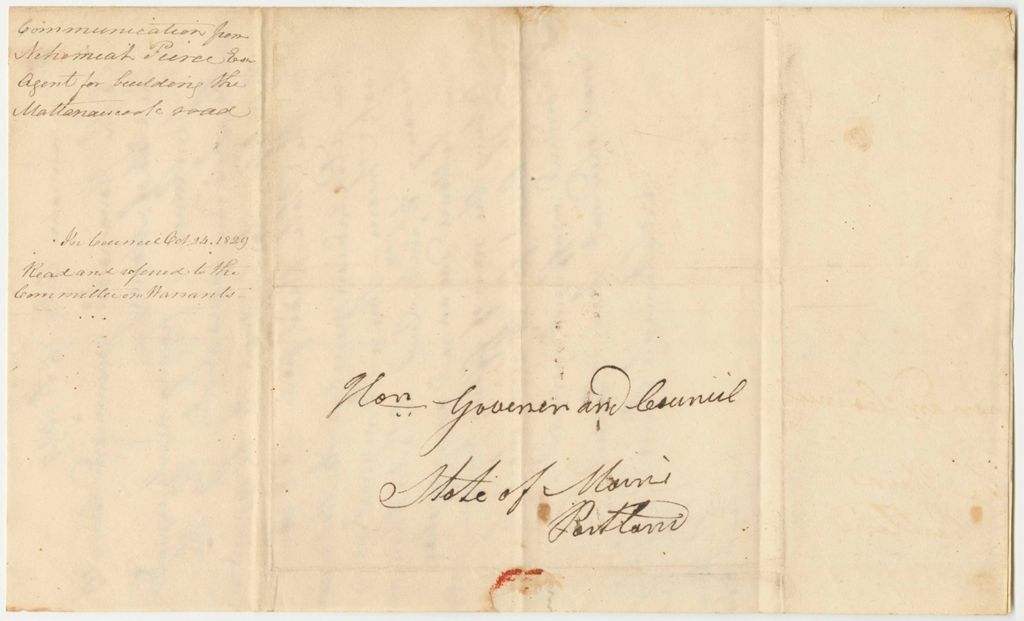 Communication from
Nehemiah Peirce Esq
Agent for building the
Mattanawcook road
In Council Oct. 24. 1829
Read and refered to the
Committee on Warrants
Hon Govener and Council
State of Maine
Portland